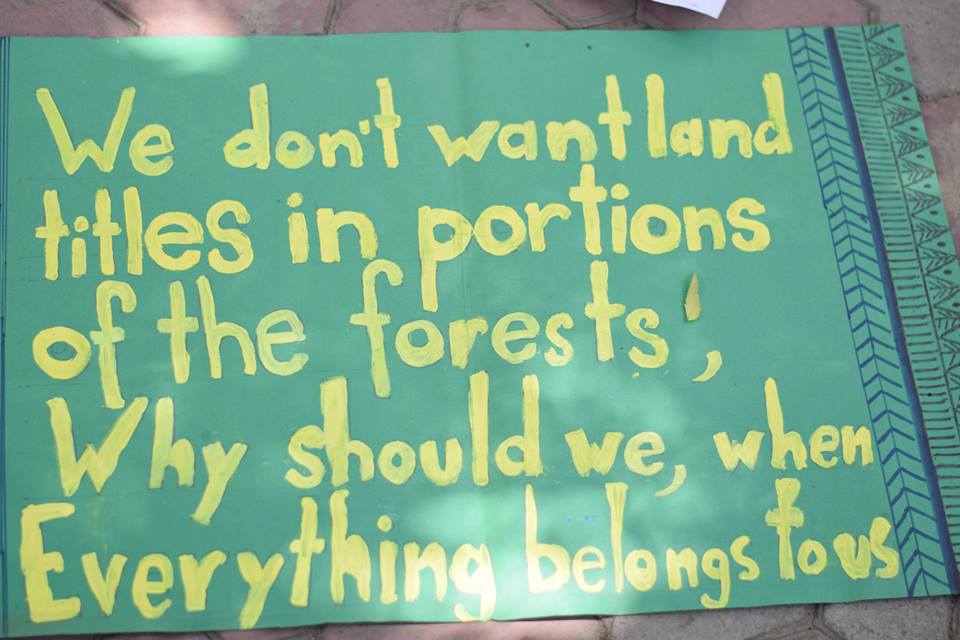 We don't want land
titles in portions
of the forests,
Why should we, when
Everything belongs to us